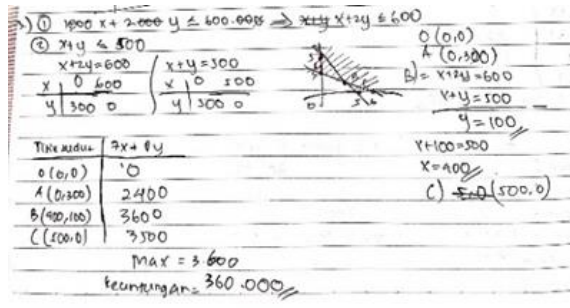 ① 1000 x + 2.000 y ≤ 600.000 ⇒ x+y x+2y ≤ 600
② x+y ≤ 500
x+2y=600
x 0 600
y 300 0
x+y=500
x 0 500
y 500 0
O (0,0)
A (0,300)
B) = x+2y=600
x+y=500
y=100
x+100=500
x=400
C) (500,0)
Titik sudut 7x + 8y
O (0,0) 0
A (0,300) 2400
B (400,100) 3600
C (500,0) 3500
Max = 3.600
keuntungan = 360.000